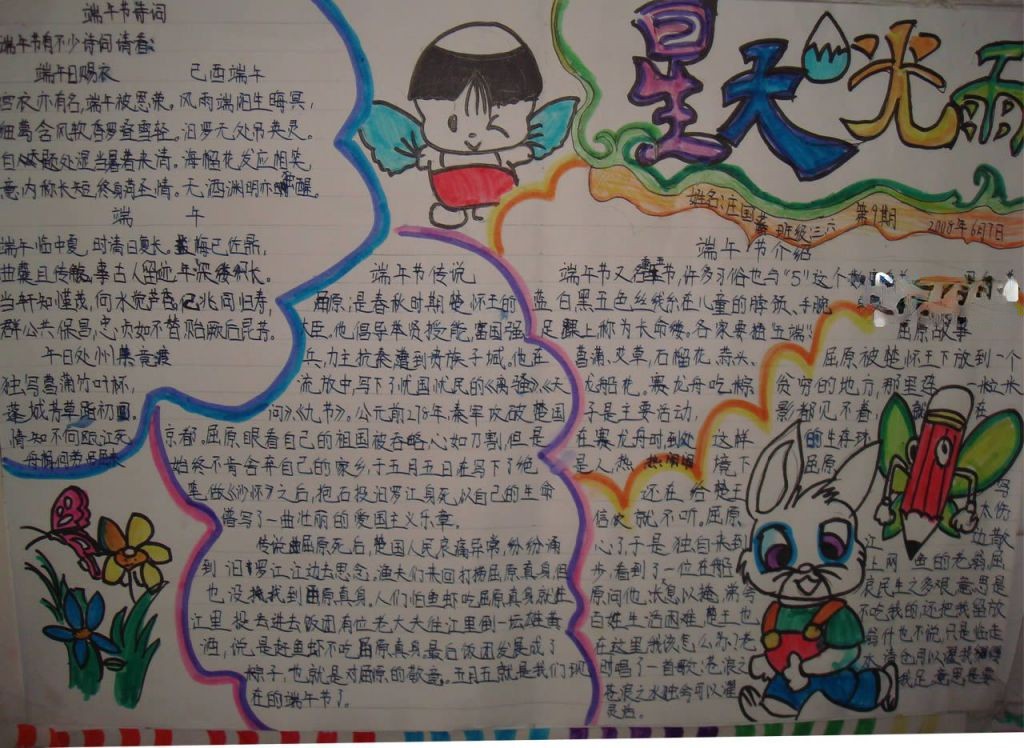 星天光雨
姓名:汪国
班级三六
第9期
2008年6月7日
端午节诗词
端午节有不少诗词请看:
端午日赐衣
己酉端午
宫衣亦有名,端午被恩荣。
风雨端阳生晦冥,
细葛含风软香罗叠雪轻。
汨罗无处吊英灵。
自天题处湿当暑着来清。
海榴花发应相笑,
意内称长短终身荷圣情。
无酒渊明亦醒。
端午
端午临中夏,时清日复长。盐梅已佐鼎,
曲糵且传觞,事古人留迹,年深缕积长。
当轩知槿茂,向水觉芦香,亿兆同归寿,
群公共保昌,忠贞如不替贻厥后昆芳。
午日处州禁竞渡
独写菖蒲竹叶杯,
蓬城芳草踏初回。
情知不向瓯江死
端午节传说
屈原,是春秋时期楚怀王的
大臣。他倡导举贤授能,富国强
兵,力主抗秦遭到贵族子
流放中,写下了忧国忧民的《离骚》《天
问》《九》。公元前278年,秦军攻破楚国
京都。屈原眼看自己的祖国被吞略心如刀割,但是
始终不肯舍弃自己的家乡,于五月五日在写下了绝
笔作《沙怀》之后,抱石投汨罗江身死,以自己的生命
谱写了一曲壮丽的爱国主义乐章。
传说屈原死后,楚国人民哀痛异常,纷纷涌
到汨罗江江边去思念。渔夫们来回打捞屈原真身但
也没找到屈原真身。人们怕鱼虾吃屈原真身就往
江里投去进去饭团有位老大夫往江里倒一坛雄黄
酒,说是赶鱼虾不吃屈原真身最后饭团发展成了
粽子,也就是对屈原的敬意。五月五就是我们现
在的端午节了。
端午节介绍
端午节又名节,许多习俗也与“5”这个
蓝白黑五色丝线系在儿童的脖颈、手腕
足腿上称为长命缕。各家要插“午端”
菖蒲、艾草,石榴花、蒜头、
龙船花。赛龙舟吃粽
子是主要活动,
在赛龙舟时到处
是人,热闹
屈原故事
屈原被楚怀王下放到一个
贫穷的地方,那里连一粒米
影都见不着,
这样的生存环
境下屈原
还在给楚王写
信就不听,屈原太伤
心了于是独自来到江边散
步,看到了一位在船上网鱼的老翁,屈
原问他,长息以掩,常哀民生之多艰意思是
百姓生活困难楚王也不吃我的还把我留放
在这里我该怎么办?老翁什也不说,只是临走
时唱了一首歌:沧浪之水清兮可以濯我
沧浪之水浊兮可以濯我足,意思是